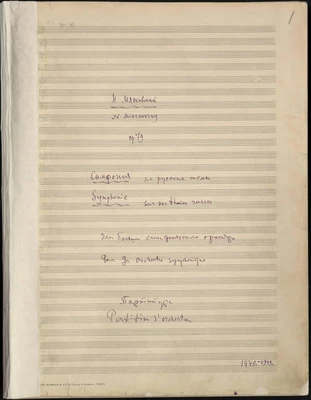 1
Н. Мясковский
N. Miaskovsky
op 79
Симфония на русские темы
Symphonie sur des thèmes russes
для большого симфонического оркестра
pour gr. orchestre symphonique
Партитура
Partition d'orchestre
1948-1949